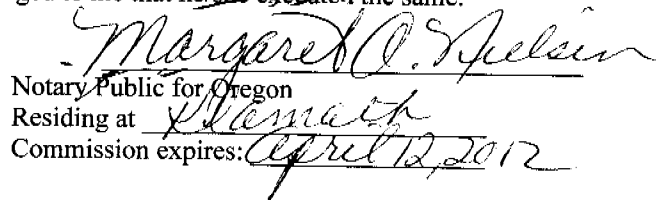 ged to me that he/she executed the same.
Margaret A. Nielsen
Notary Public for Oregon
Residing at Klamath
Commission expires: April 12, 2012